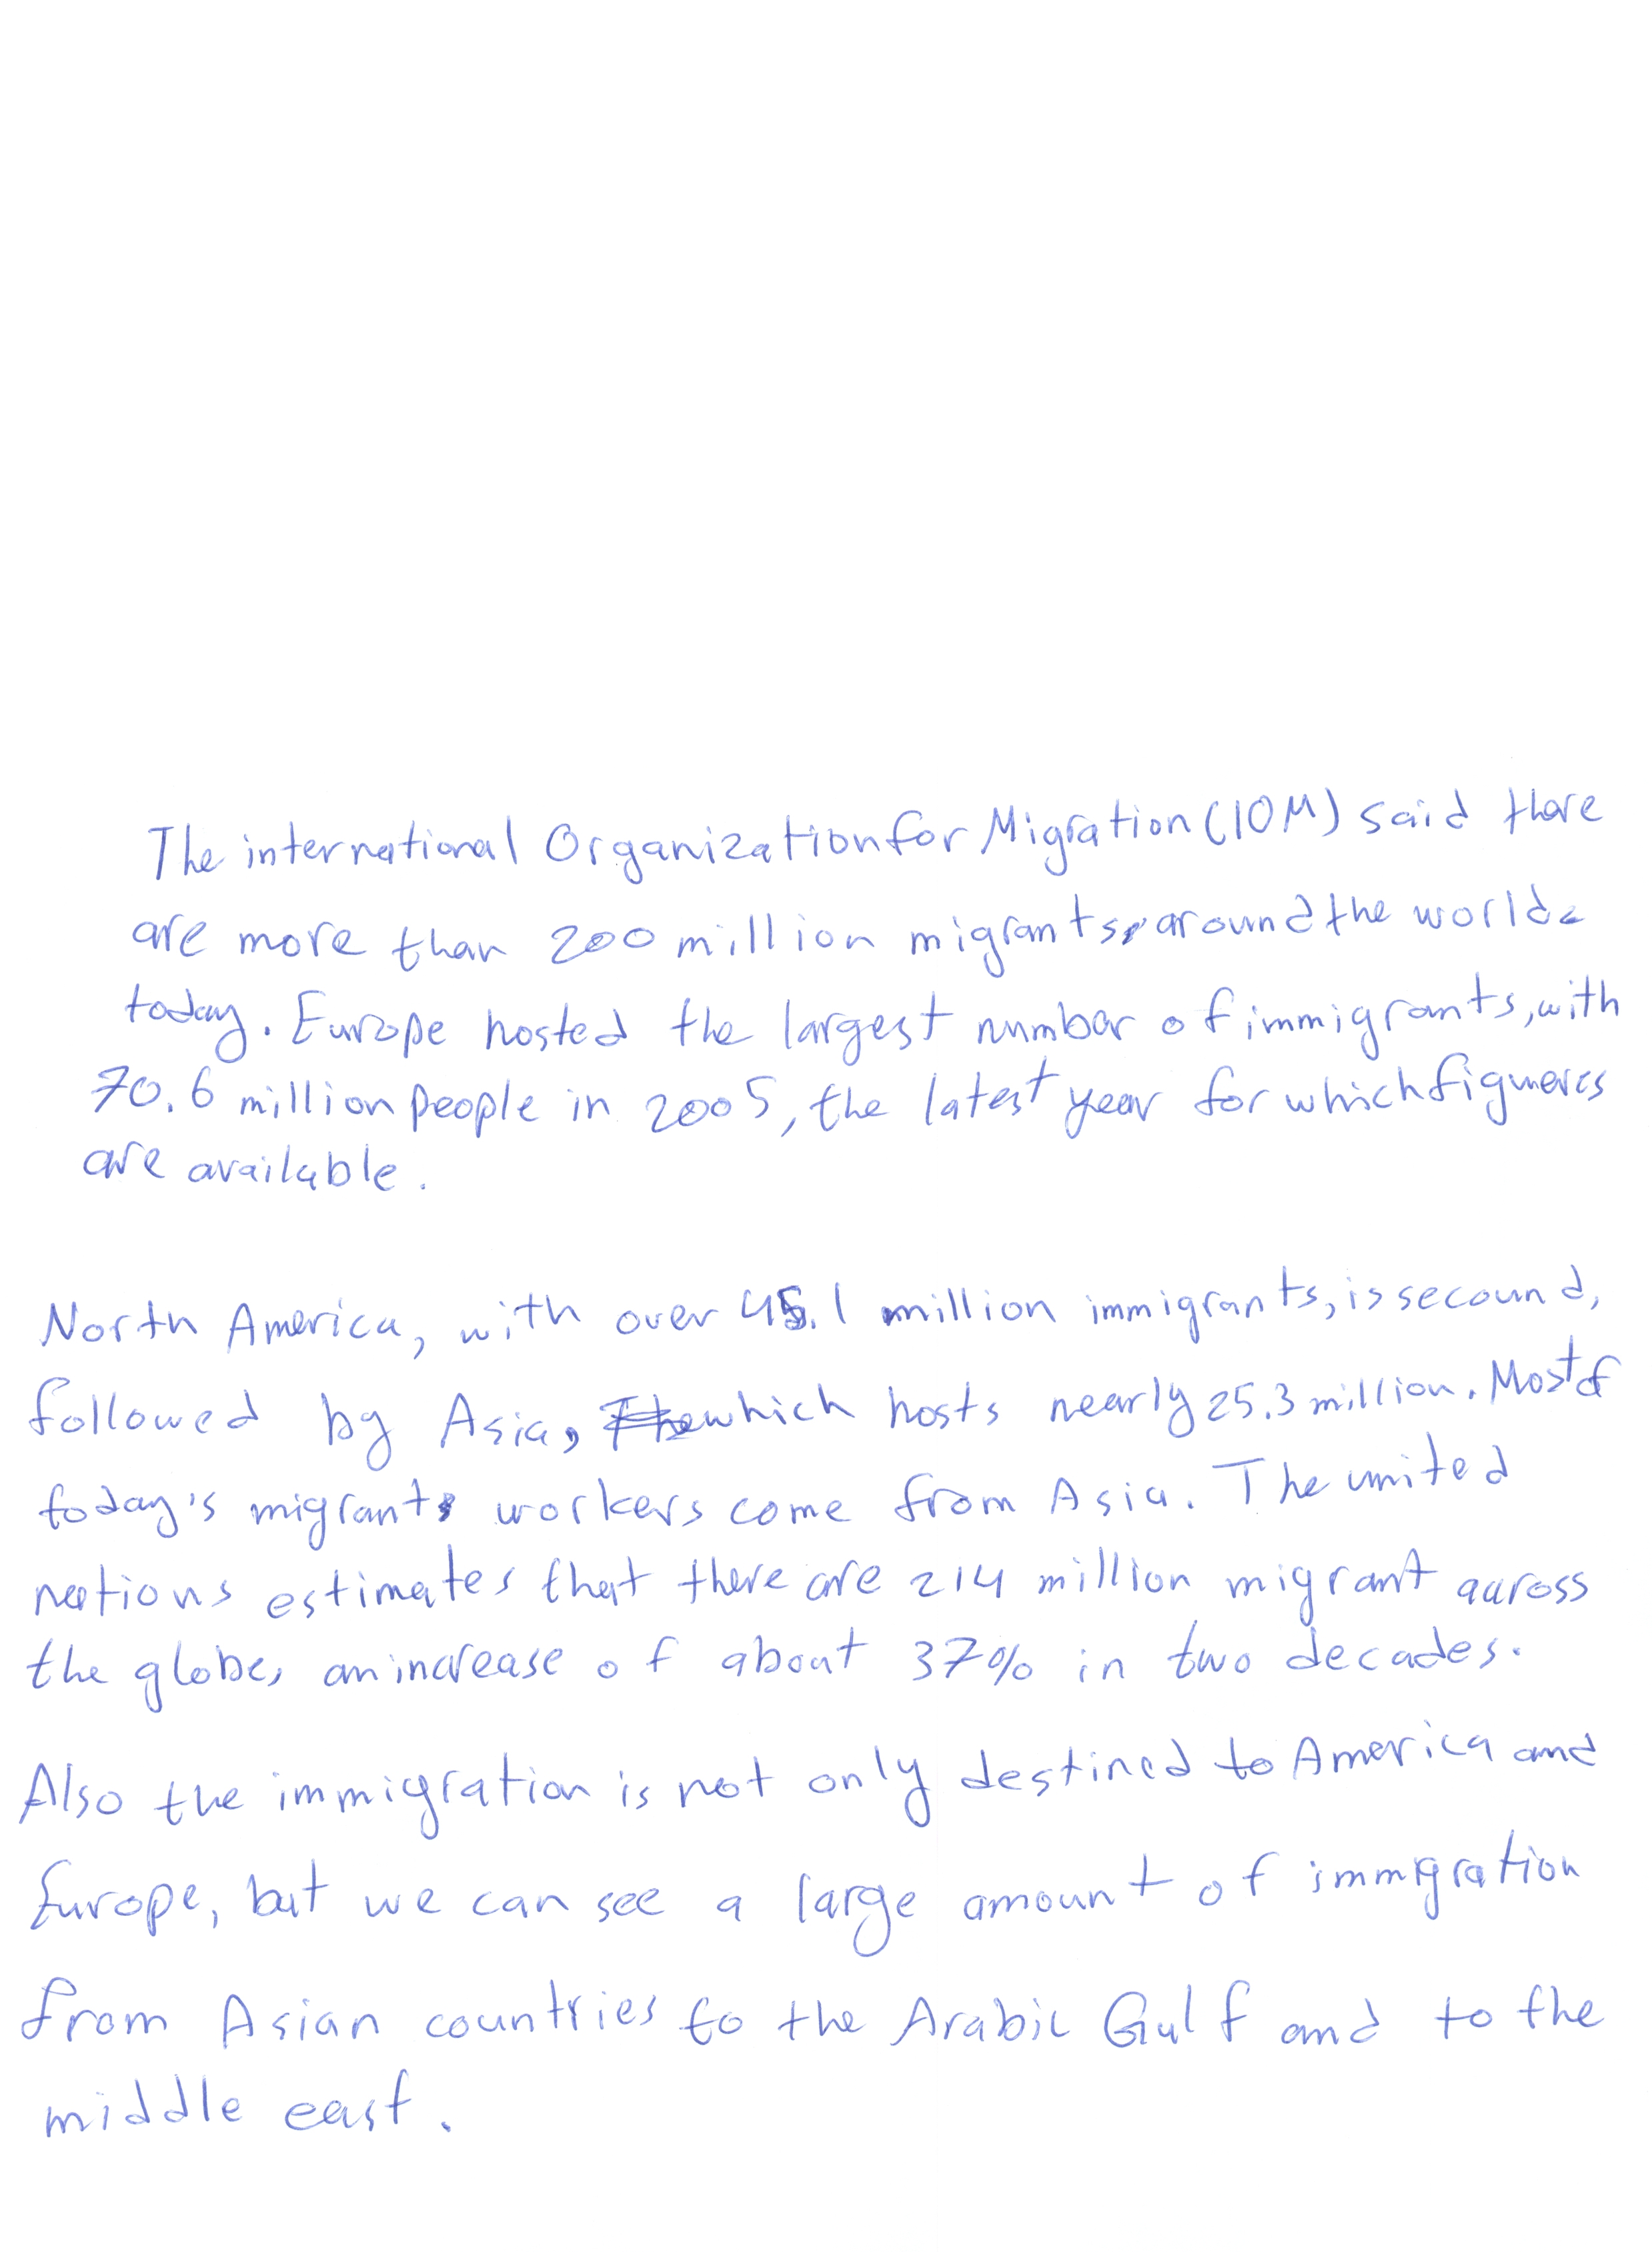 The international Organization for Migration (IOM) said there
are more than 200 million migrants around the world
today. Europe hosted the largest number of immigrants, with
70.6 million people in 2005, the latest year for which figueres
are available.
North America, with over 45.1 million immigrants, is secound,
followed by Asia, which hosts nearly 25.3 million. Most of
today's migrant workers come from Asia. The united
nations estimates that there are 214 million migrant across
the globe, an increase of about 37% in two decades.
Also the immigration is not only destined to America and
Europe, but we can see a large amount of immigration
from Asian countries to the Arabic Gulf and to the
middle east.